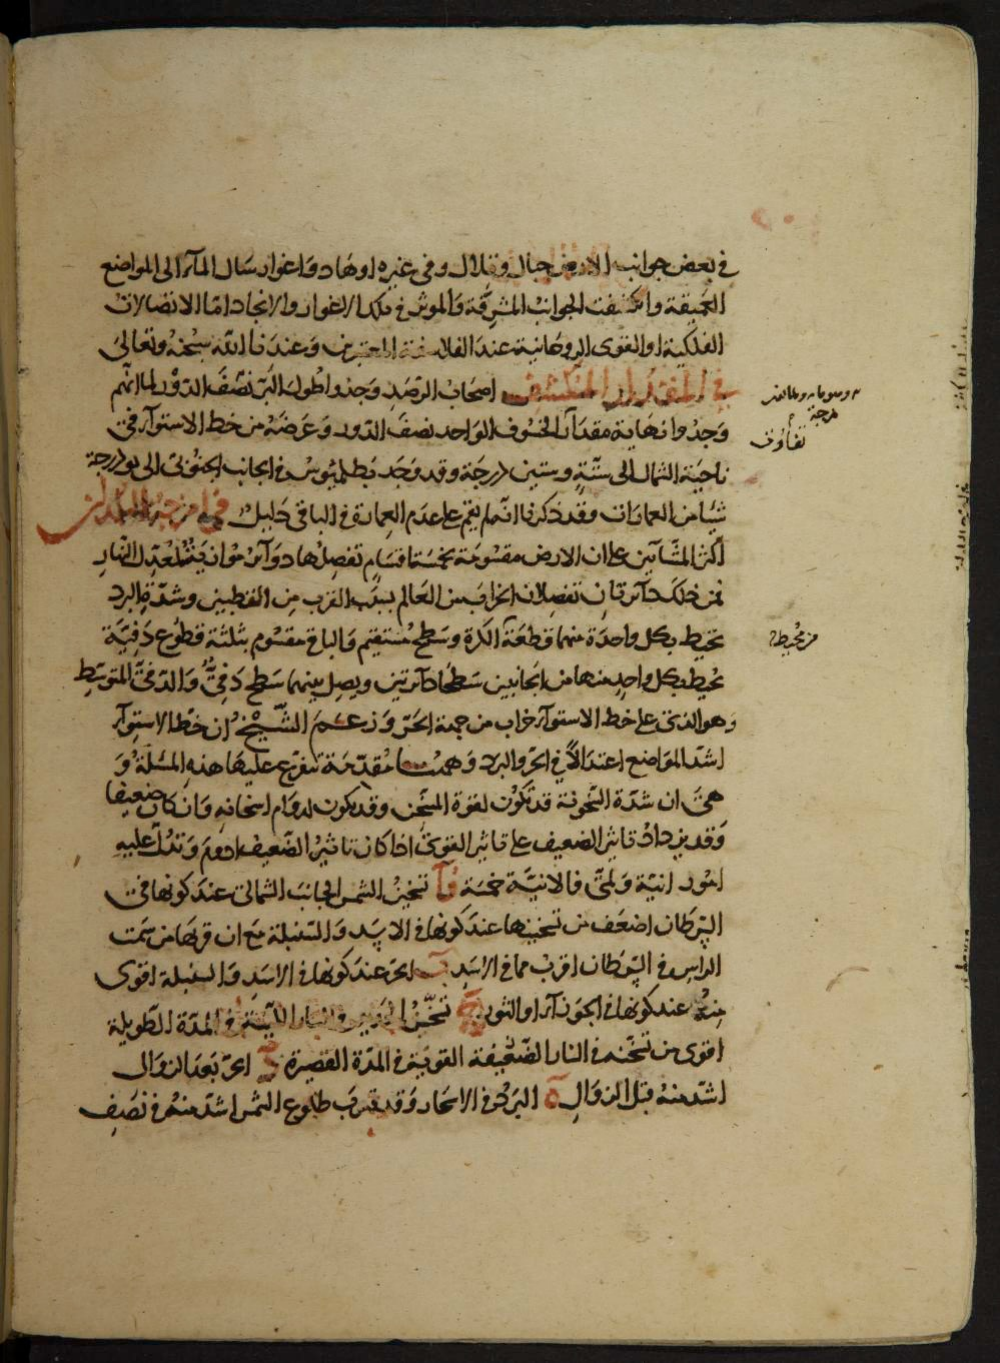 في بعض جوانب الارض جبال وتلال وفي غيره اوهاد واغوار سال المآء الى المواضع
العميقة وانكشفت الجوانب المشرفة والموثر في تلك الاغوار والانجاد اما الاتصالات
الفلكية او القوى الروحانية عند الفلاسفة المعتبرين وعندنا الله سبحنه وتعالى
في المقدار المنكشف اصحاب الرصد وجدوا طول البر نصف الدور لما انهم
وجدوا نهاية مقدار الخسوف الواحد نصف الدور وعرضه من خط الاستوآء في
ناحية الشمال الى ستة وستين درجة وقد وجد بطلميوس في الجانب الجنوبي الى يو درجة
شيا من العمارات وقد ذكرنا انه لم يقم على عدم العمارة في الباقي دليل في امزجة البلدان
اكثر المشآئين على ان الارض مقسومة بخمسة اقسام تفصلها دوآئر موازية لمعدل النهار
فمن ذلك دآئرتان تفصلان الخراب من العالم بسبب القرب من القطبين وشدة البرد
تحيط بكل واحدة منهما قطعة الكرة وسطح مستقيم والباقي مقسوم بثلثة قطوع دفية
يحيط بكل واحد منها من الجانبين سطحا دآئرتين ويصل بينهما سطح دفي والدفي المتوسط
وهو الذي على خط الاستوآء خراب من جهة الحر وزعم الشيخ ان خط الاستوآء
اشد المواضع اعتدالا في الحر والبرد وههنا مقدمة يتفرع عليها هذه المسئلة و
هي ان شدة السخونة قد تكون لقوة المسخن وقد يكون لدوام اسخانه وان كان ضعيفا
وقد يزداد تاثير الضعيف على تاثير القوي اذا كان تاثير الضعيف ادوم وتدل عليه
امور انية ولمي فالانية خمسة ا تسخين الشمس الجانب الشمالي عند كونها في
السرطان اضعف من تسخينها عند كونها في الاسد والسنبلة مع ان قربها من سمت
الراس في السرطان اقرب مما في الاسد ب الحر عند كونها في الاسد والسنبلة اقوى
منه عند كونها في الجوزآء او الثور ج تسخن الحديد في النار اللينة في المدة الطويلة
اقوى من تسخنه في النار الضعيفة القوية في المدة القصيرة د الحر بعد الزوال
اشد منه قبل الزوال ه البرد في الاسحار وقد قرب طلوع الشمس اشد منه في نصف
درجة
تفاوت
من محيطة